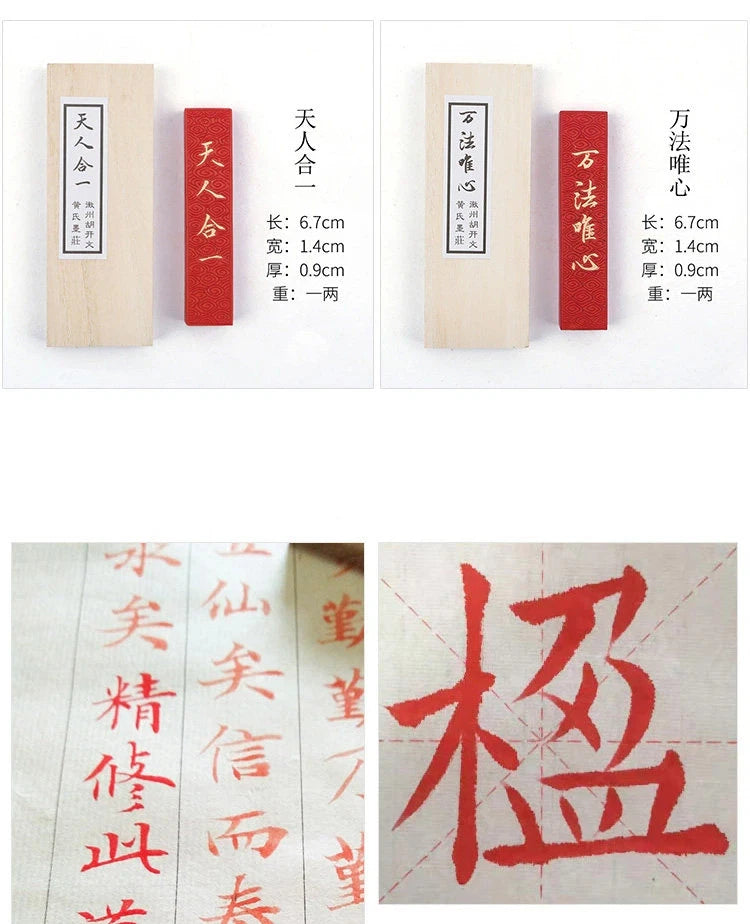 天人合一
徽州胡开文
黄氏墨莊
天人合一
天人合一
长：6.7cm
宽：1.4cm
厚：0.9cm
重：一两
万法唯心
徽州胡开文
黄氏墨莊
万法唯心
万法唯心
长：6.7cm
宽：1.4cm
厚：0.9cm
重：一两
勤勤万勤
仙矣信而
矣精修此
楹